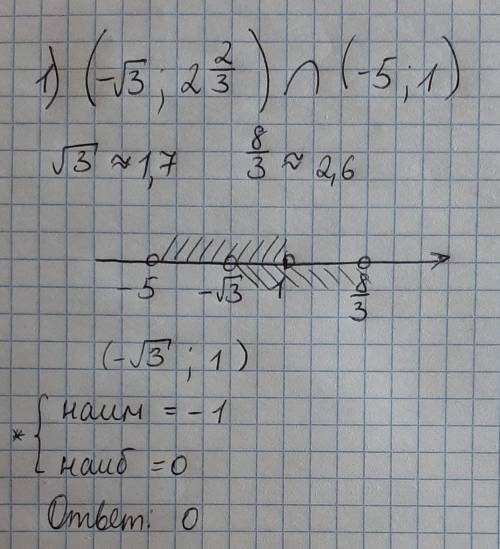 1) (-√3 ; 2 2/3) ∩ (-5 ; 1)
√3 ≈ 1,7 8/3 ≈ 2,6
-5 -√3 1 8/3
(-√3 ; 1)
* { наим = -1
наиб = 0
Ответ: 0